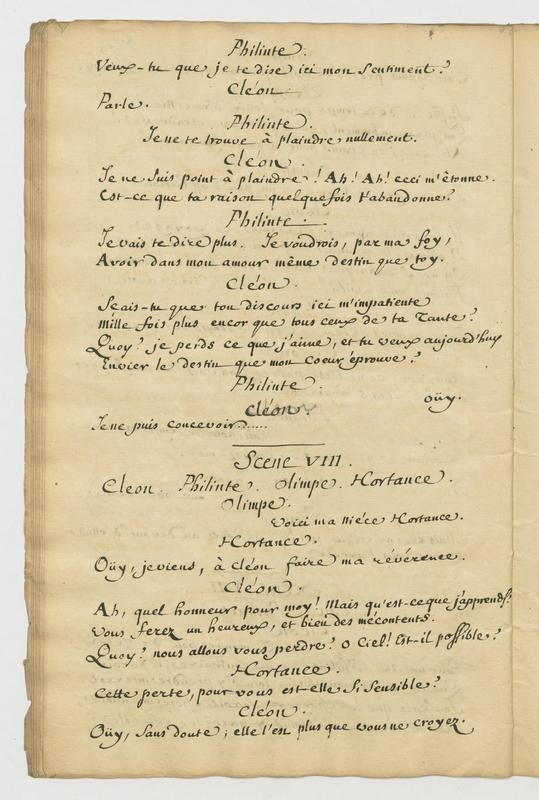 Philinte.
Veux-tu que je te dise ici mon sentiment?
Cléon.
Parle.
Philinte.
Je ne te trouve à plaindre nullement.
Cléon.
Je ne suis point à plaindre! Ah! Ah! ceci m'êtonne.
Est-ce que ta raison quelquefois t'abandonne?
Philinte.
Je vais te dire plus. Je voudrois, par ma foy,
Avoir dans mon amour même destin que toy.
Cléon.
Scais-tu que ton discours ici m'impatiente
mille fois plus encor que tous ceux de ta Tante?
Quoy? je perds ce que j'aime, et tu veux aujourd'huy
Envier le destin que mon Coeur éprouve?
Philinte.
oüy.
Cléon.
Je ne puis concevoir......
Scene VIII.
Cleon. Philinte. Olimpe. Hortance.
Olimpe.
Voici ma niéce Hortance.
Hortance.
Oüy, je viens, à Cléon faire ma révérence.
Cléon.
Ah, quel honneur pour moy! Mais qu'est-ce que j'apprends?
Vous ferez un heureux, et bien des mécontents.
Quoy? nous allons vous perdre? O Ciel! Est-il possible?
Hortance.
Cette perte, pour vous est-elle si sensible?
Cléon.
Oüy, sans doute; elle l'est plus que vous ne croyez.